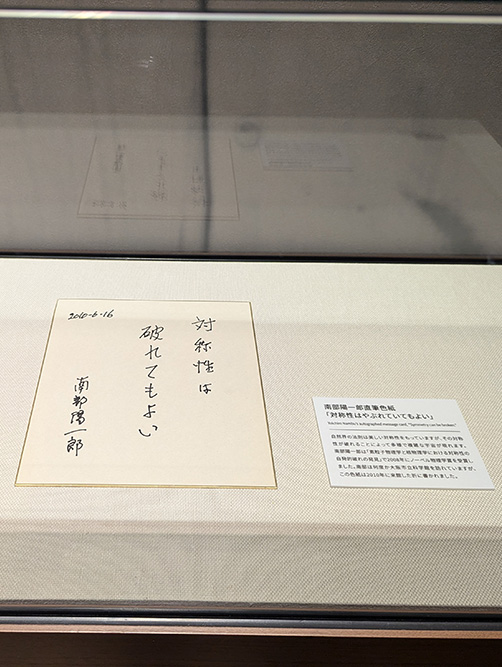 対称性は
破れてもよい
2010-6-16
南部陽一郎
南部陽一郎直筆色紙
「対称性はやぶれていてもよい」
Yoichiro Nambu's autographed message card, "Symmetry can be broken."
自然界の法則は美しい対称性をもっていますが、その対称
性が破れることによって多様で複雑な宇宙が現れます。
南部陽一郎は「素粒子物理学と核物理学における対称性の
自発的破れの発見」で2008年にノーベル物理学賞を受賞し
ました。南部は何度か大阪市立科学館を訪れていますが、
この色紙は2010年に来館した折に書かれました。